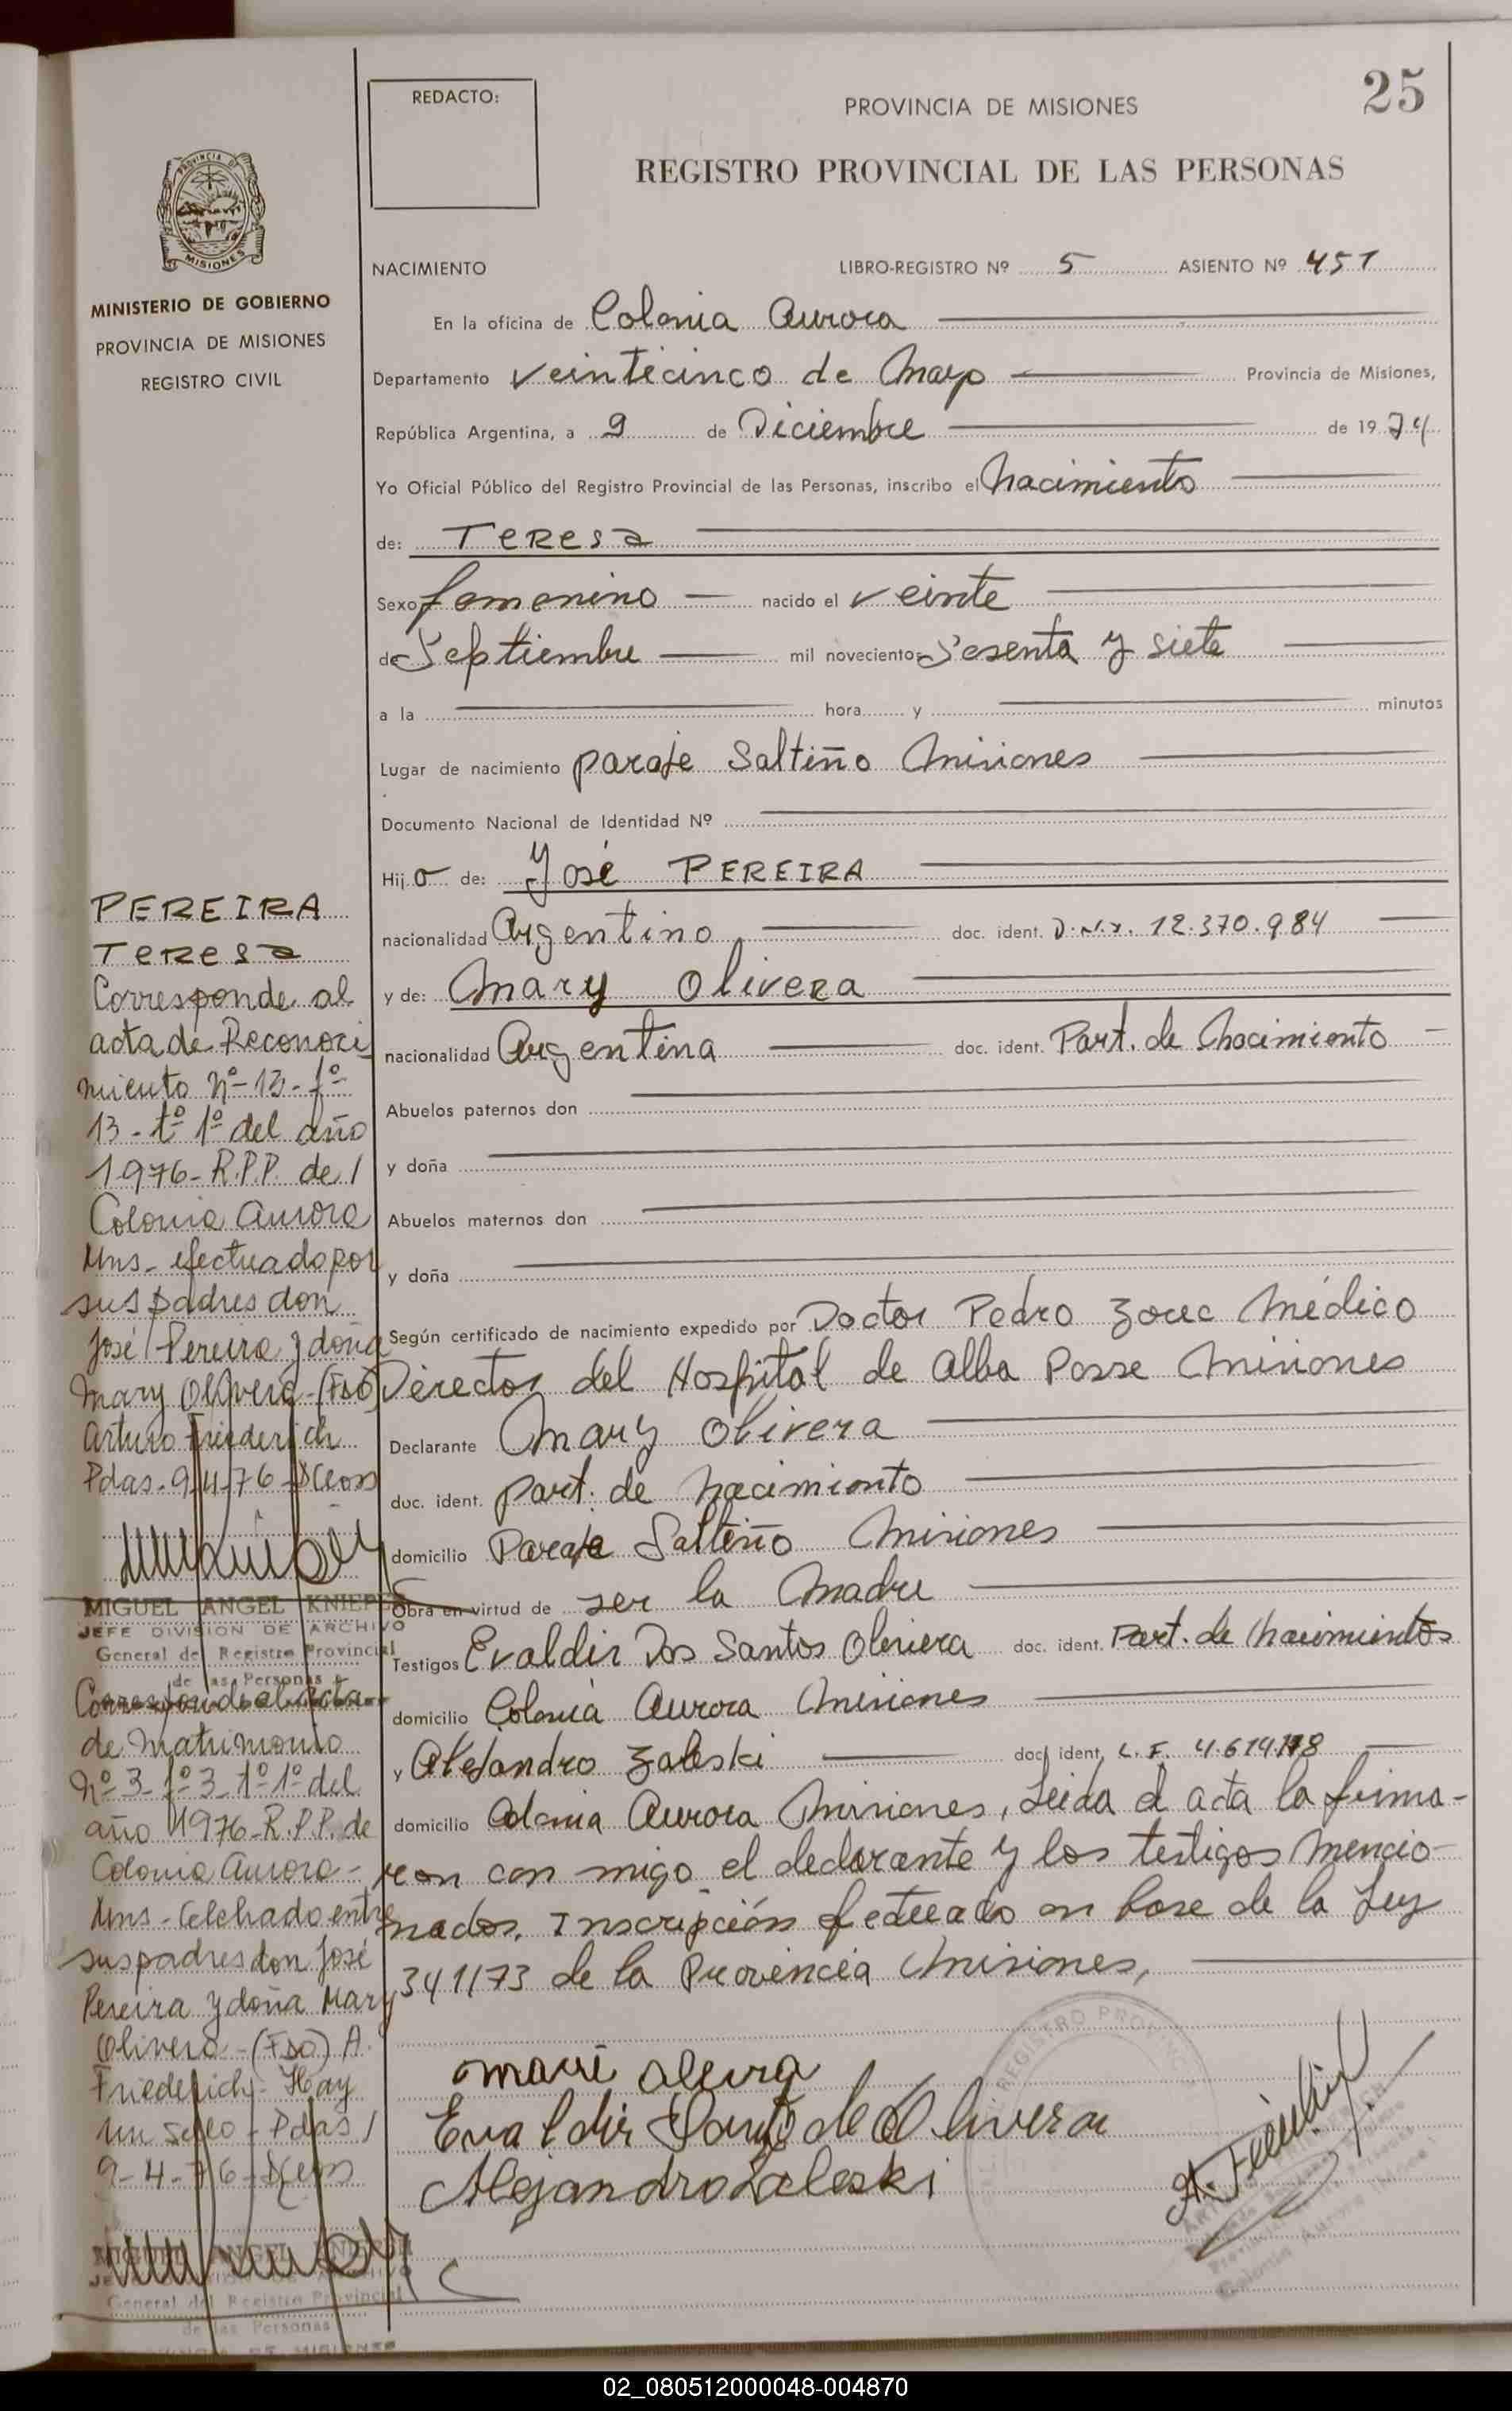 25
REDACTO:
PROVINCIA DE MISIONES
REGISTRO PROVINCIAL DE LAS PERSONAS
PROVINCIA DE
MISIONES
MINISTERIO DE GOBIERNO
PROVINCIA DE MISIONES
REGISTRO CIVIL
NACIMIENTO LIBRO-REGISTRO Nº 5 ASIENTO Nº 451
En la oficina de Colonia Aurora
Departamento Veinticinco de Mayo Provincia de Misiones,
República Argentina, a 9 de Diciembre de 1974
Yo Oficial Público del Registro Provincial de las Personas, inscribo el Nacimiento
de: Teresa
Sexo femenino nacido el veinte
de Septiembre mil novecientos Sesenta y siete
a la hora y minutos
Lugar de nacimiento paraje Saltiño Misiones
Documento Nacional de Identidad Nº
Hija de: José PEREIRA
nacionalidad Argentino doc. ident. D.N.I. 12.370.984
y de: Mary Olivera
nacionalidad Argentina doc. ident. Part. de Nacimiento
Abuelos paternos don
y doña
Abuelos maternos don
y doña
Según certificado de nacimiento expedido por Doctor Pedro Zouc Médico
Director del Hospital de Alba Posse Misiones
Declarante Mary Olivera
doc. ident. part. de Nacimiento
domicilio Paraje Saltiño Misiones
Obra en virtud de ser la Madre
Testigos Evaldir Dos Santos Oliviera doc. ident. Part. de Nacimientos
domicilio Colonia Aurora Misiones
y Alejandro Zaleski doc. ident. L.E. 4.614.118
domicilio Colonia Aurora Misiones, Leida el acta la firma-
ron con migo el declarante y los testigos Mencio-
nados. Inscripción efectuado en base de la Ley
341/73 de la Provincia Misiones,
Evaldir Santo de Olivera
Alejandro Zaleski
A. Friederich
REGISTRO PROVINC
PEREIRA
Teresa
Corresponde al
acta de Reconoci
miento nº-13-fº
13-tº 1º del año
1976-R.P.P. de/
Colonia Aurora
Mns-efectuado por
sus padres don
José Pereira y doña
Mary Olivera-(FDO)
Arturo Friederich
Pdas-9-4-76
MIGUEL ANGEL KNIEP
JEFE DIVISION DE ARCHIVO
General del Registro Provincial
de las Personas
Corresponde al acta
de Matrimonio
nº-3-fº3-tº1º del
año 1976-R.P.P. de
Colonia Aurora-
Mns-Celebrado entre
sus padres don José
Pereira y doña Mary
Olivera-(FDO) A.
Friederich-Hay
un sello-Pdas/
9-4-76
MIGUEL ANGEL
General del Registro Provincial
de las Personas
02_080512000048-004870